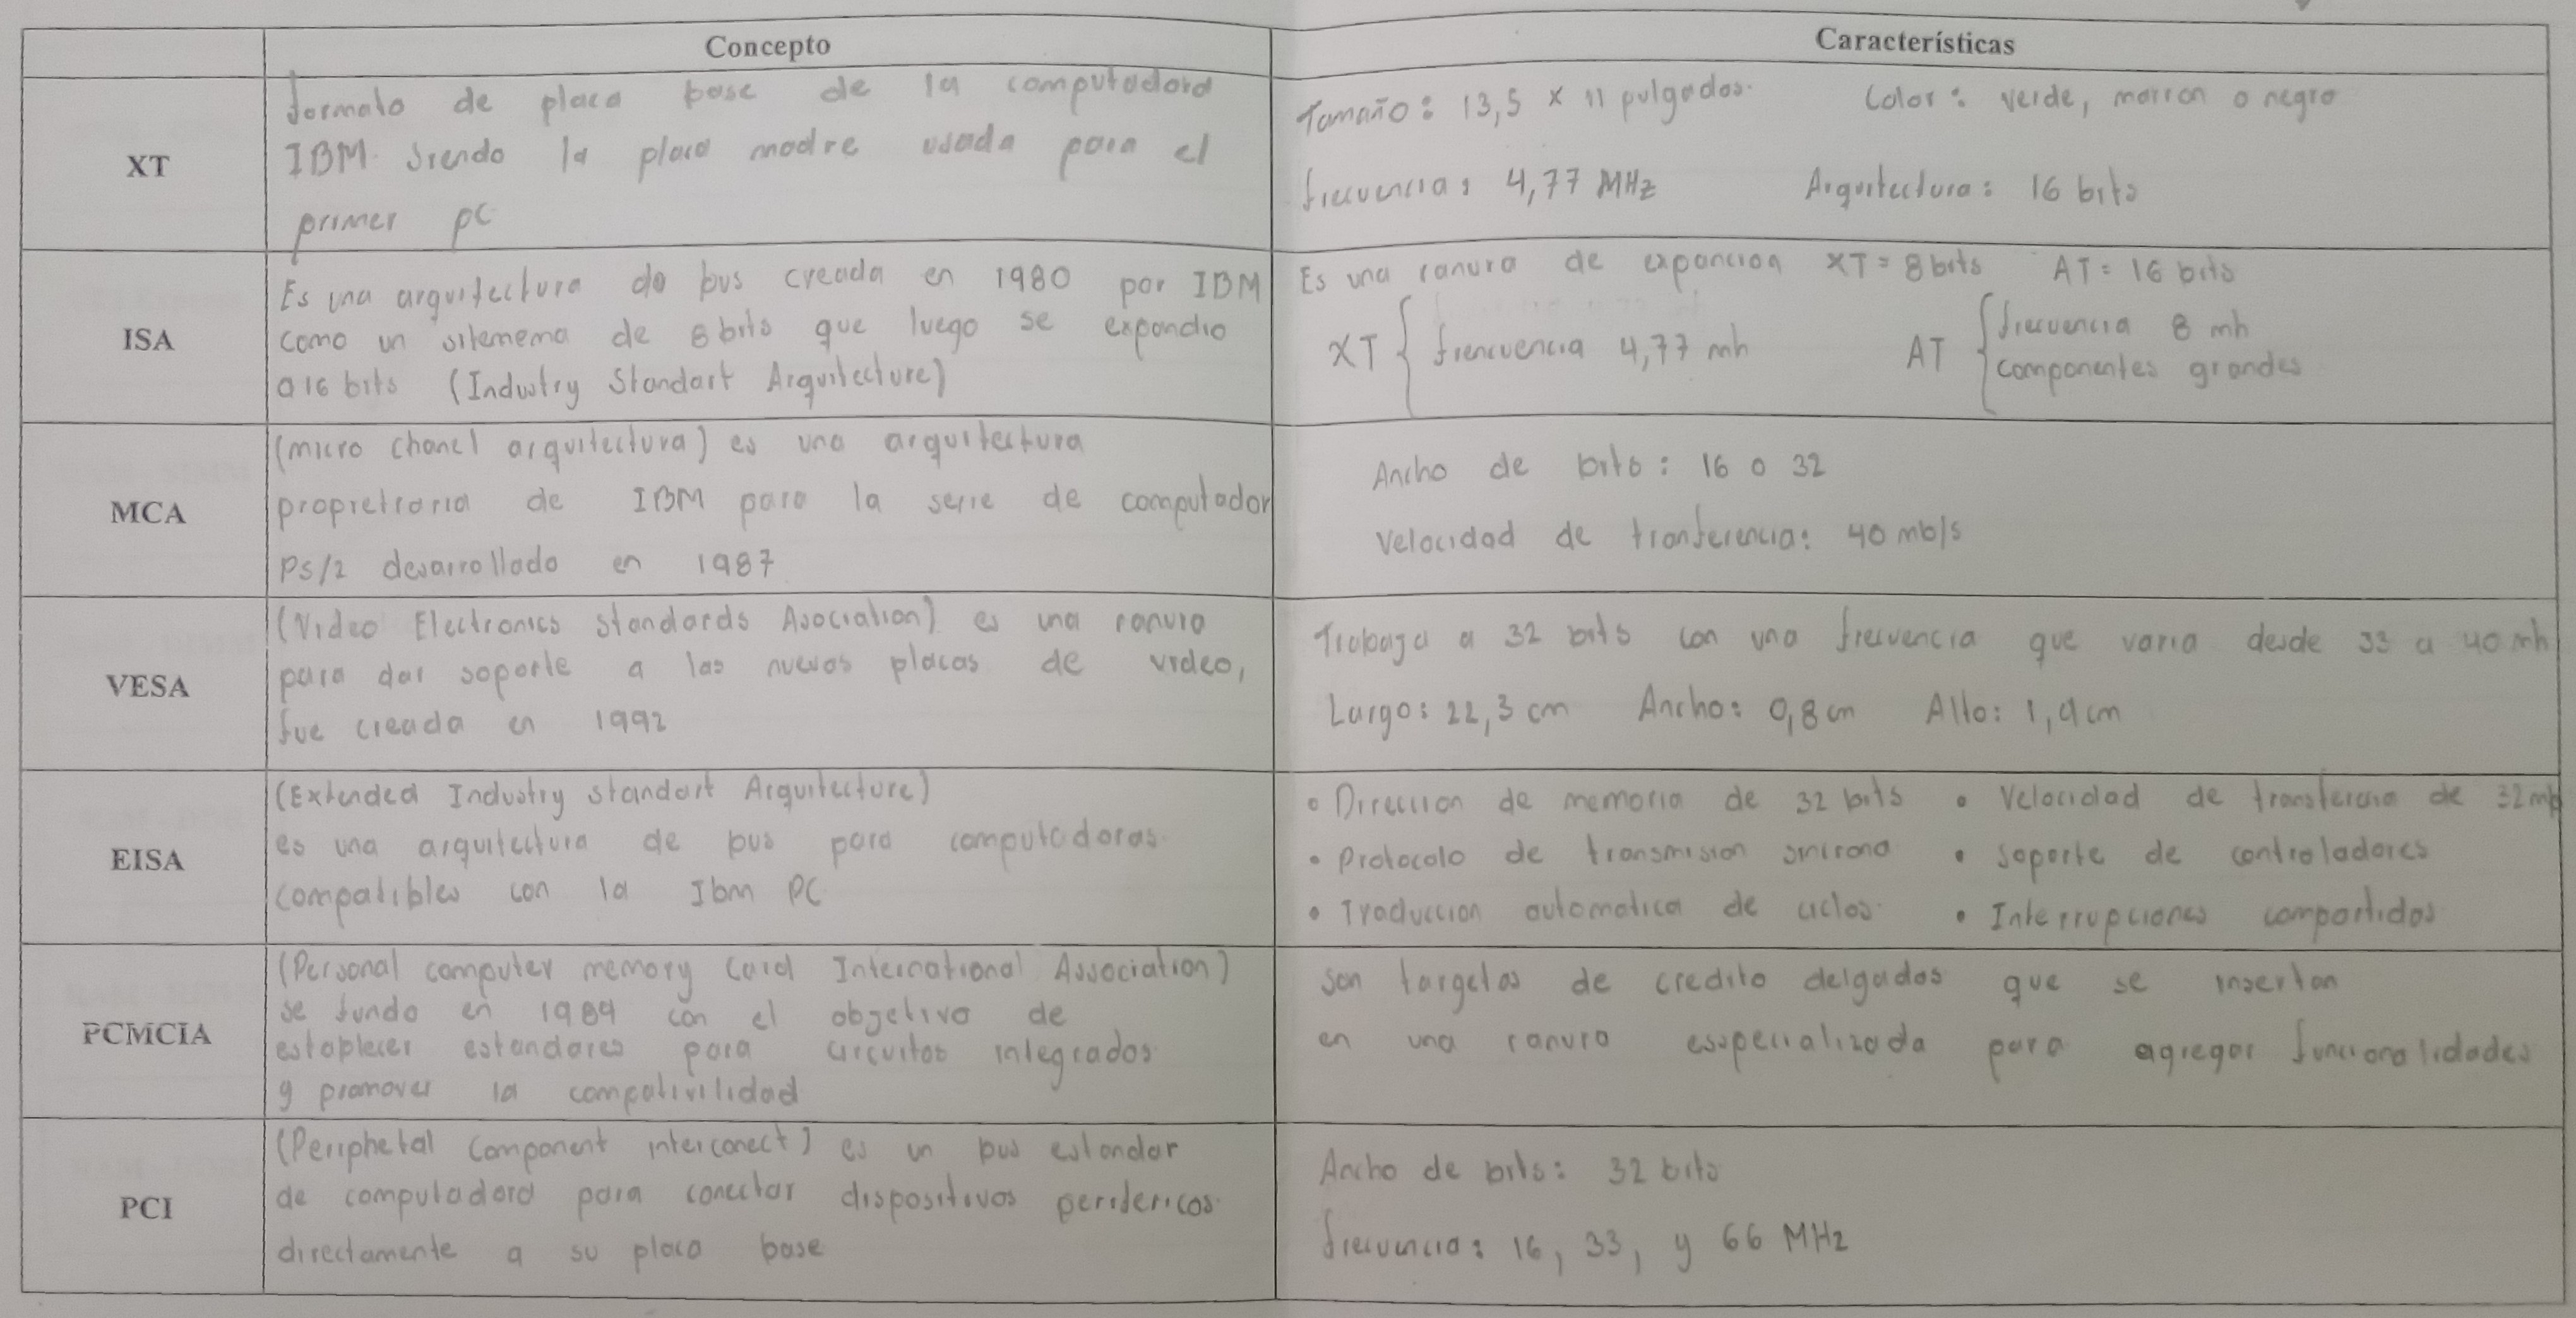 Concepto
Características
XT
formato de placa base de la computadora
IBM siendo la placa madre usada para el
primer pc
Tamaño: 13,5 x 11 pulgadas. Color: verde, marron o negro
frecuencia: 4,77 MHz Arquitectura: 16 bits
ISA
Es una arquitectura de bus creada en 1980 por IBM
como un sitemema de 8 bits que luego se expandio
a 16 bits (Industry Standart Arquitecture)
Es una ranura de expancion XT = 8 bits AT = 16 bits
XT { frencuencia 4,77 mh AT { frecuencia 8 mh
componentes grandes
MCA
(micro chanel arquitectura) es una arquitectura
propietraria de IBM para la serie de computador
PS/2 desarrollado en 1987
Ancho de bits: 16 o 32
Velocidad de tranferencia: 40 mb/s
VESA
(Video Electronics standards Asociation) es una ranura
para dar soporte a las nuevas placas de video,
fue creada en 1992
Trabaja a 32 bits con una frecuencia que varia desde 33 a 40 mh
Largo: 22,3 cm Ancho: 0,8 cm Alto: 1,9 cm
EISA
(Extended Industry standart Arquitecture)
es una arquitectura de bus para computadoras
compatibles con la Ibm PC
• Direccion de memoria de 32 bits • Velocidad de transferencia de 32 mb
• Protocolo de transmision sincrona • soporte de controladores
• Traduccion automatica de ciclos • Interrupciones compartidas
PCMCIA
(Personal computer memory Card International Association)
se fundo en 1989 con el objetivo de
establecer estandares para circuitos integrados
y promover la compativilidad
son targetas de credito delgadas que se insertan
en una ranura esspecializada para agregar funcionalidades
PCI
(Periphetal Component interconect) es un bus estandar
de computadora para conectar dispositivos perifericos
directamente a su placa base
Ancho de bits: 32 bits
frecuencia: 16, 33, y 66 MHz